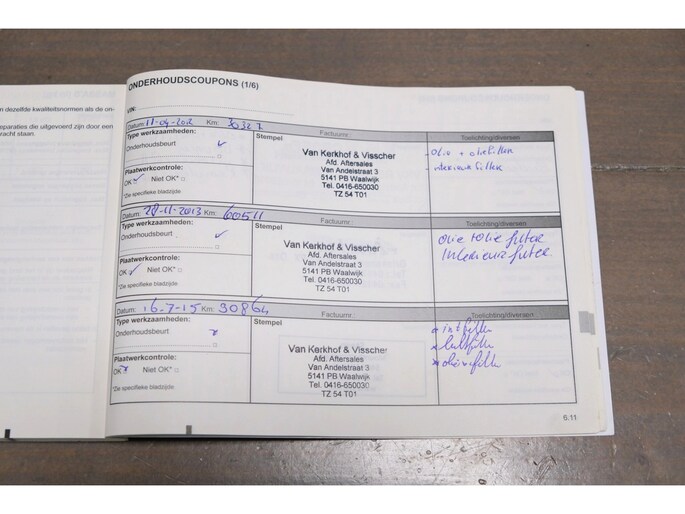 n dezelfde kwaliteitsnormen als de on-
eparaties die uitgevoerd zijn door een
racht staan.
ONDERHOUDSCOUPONS (1/6)
VIN:
Datum: 11-04-2012 Km: 30327
Type werkzaamheden:
Stempel
Factuurnr.:
Toelichting/diversen
Onderhoudsbeurt
Van Kerkhof & Visscher
Afd. Aftersales
Van Andelstraat 3
5141 PB Waalwijk
Tel. 0416-650030
TZ 54 T01
- olie + oliefilter
- interieurfilter
Plaatwerkcontrole:
OK Niet OK*
*Zie specifieke bladzijde
Datum: 28-11-2013 Km: 60511
Type werkzaamheden:
Stempel
Factuurnr.:
Toelichting/diversen
Onderhoudsbeurt
Van Kerkhof & Visscher
Afd. Aftersales
Van Andelstraat 3
5141 PB Waalwijk
Tel. 0416-650030
TZ 54 T01
Olie + Olie filter
Interieur filter
Plaatwerkcontrole:
OK Niet OK*
*Zie specifieke bladzijde
Datum: 16-7-15 Km: 90864
Type werkzaamheden:
Stempel
Factuurnr.:
Toelichting/diversen
Onderhoudsbeurt
Van Kerkhof & Visscher
Afd. Aftersales
Van Andelstraat 3
5141 PB Waalwijk
Tel. 0416-650030
TZ 54 T01
* int filter
* luchtfilter
* oliefilter
Plaatwerkcontrole:
OK Niet OK*
*Zie specifieke bladzijde
6.11